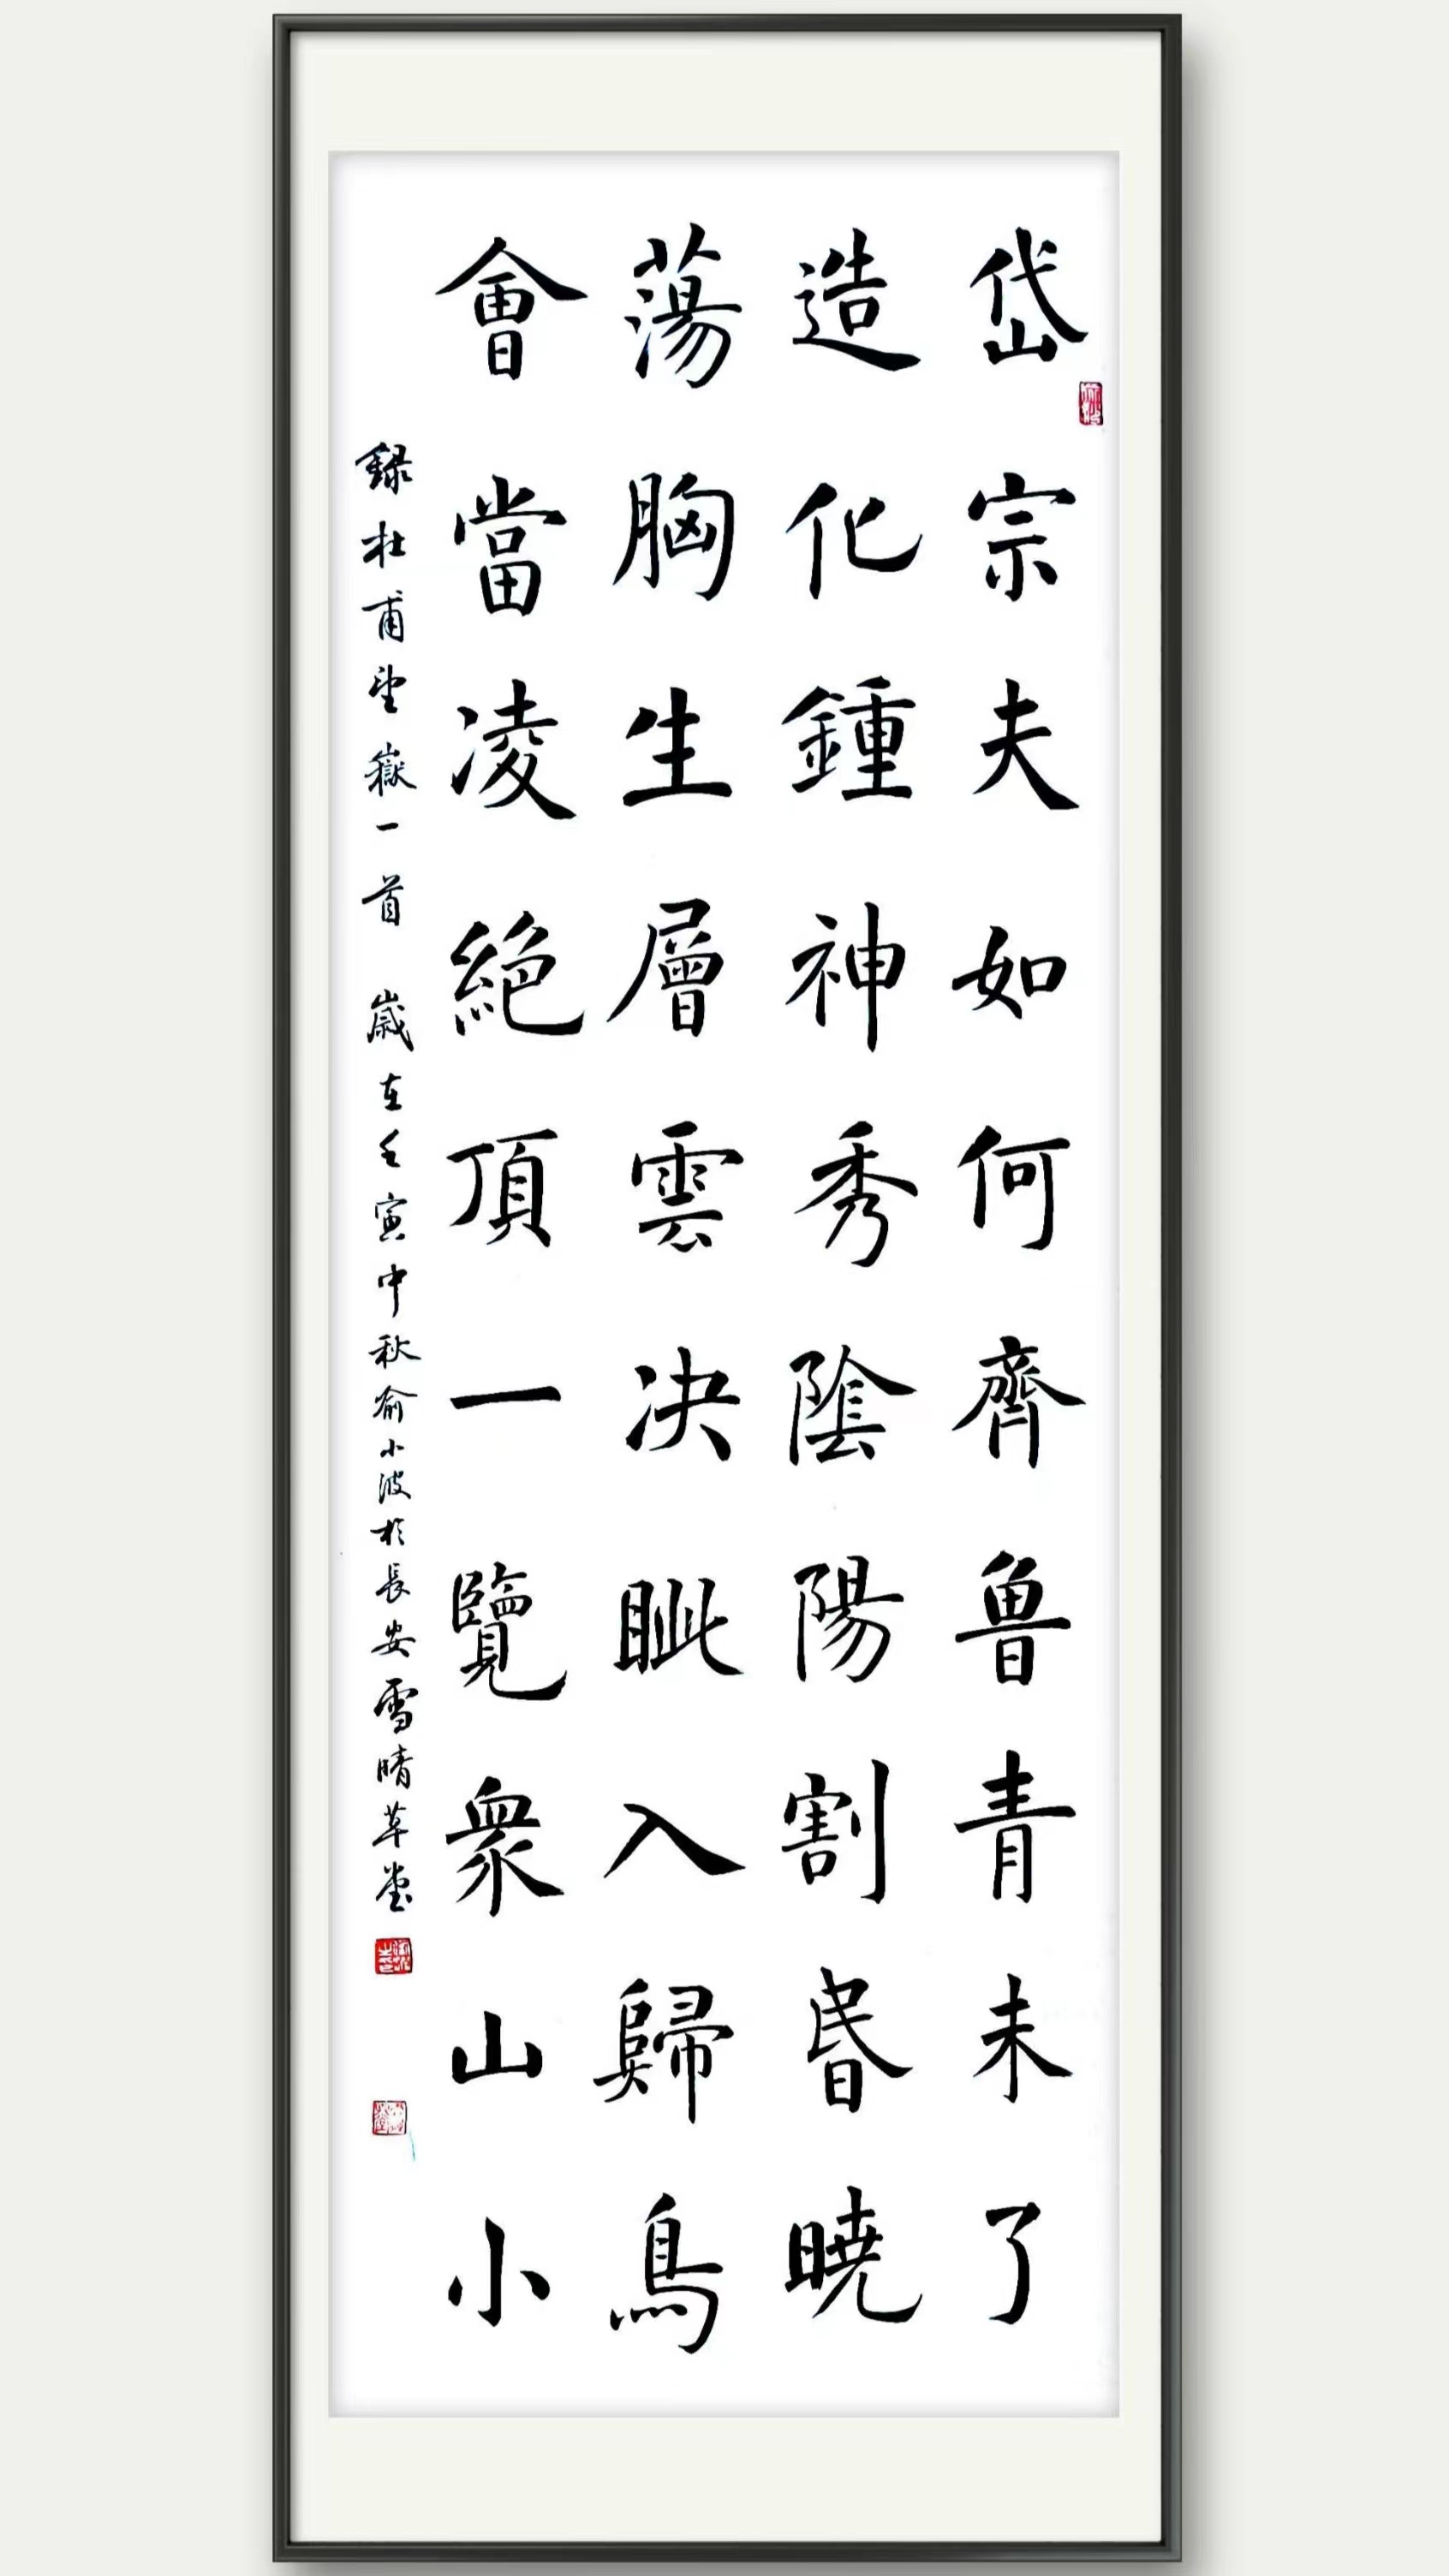 岱宗夫如何齊魯青未了
造化鍾神秀陰陽割昏曉
蕩胸生層雲决眦入歸鳥
會當凌絶頂一覽衆山小
録杜甫望嶽一首 歲在壬寅中秋俞小波於長安雪晴草堂